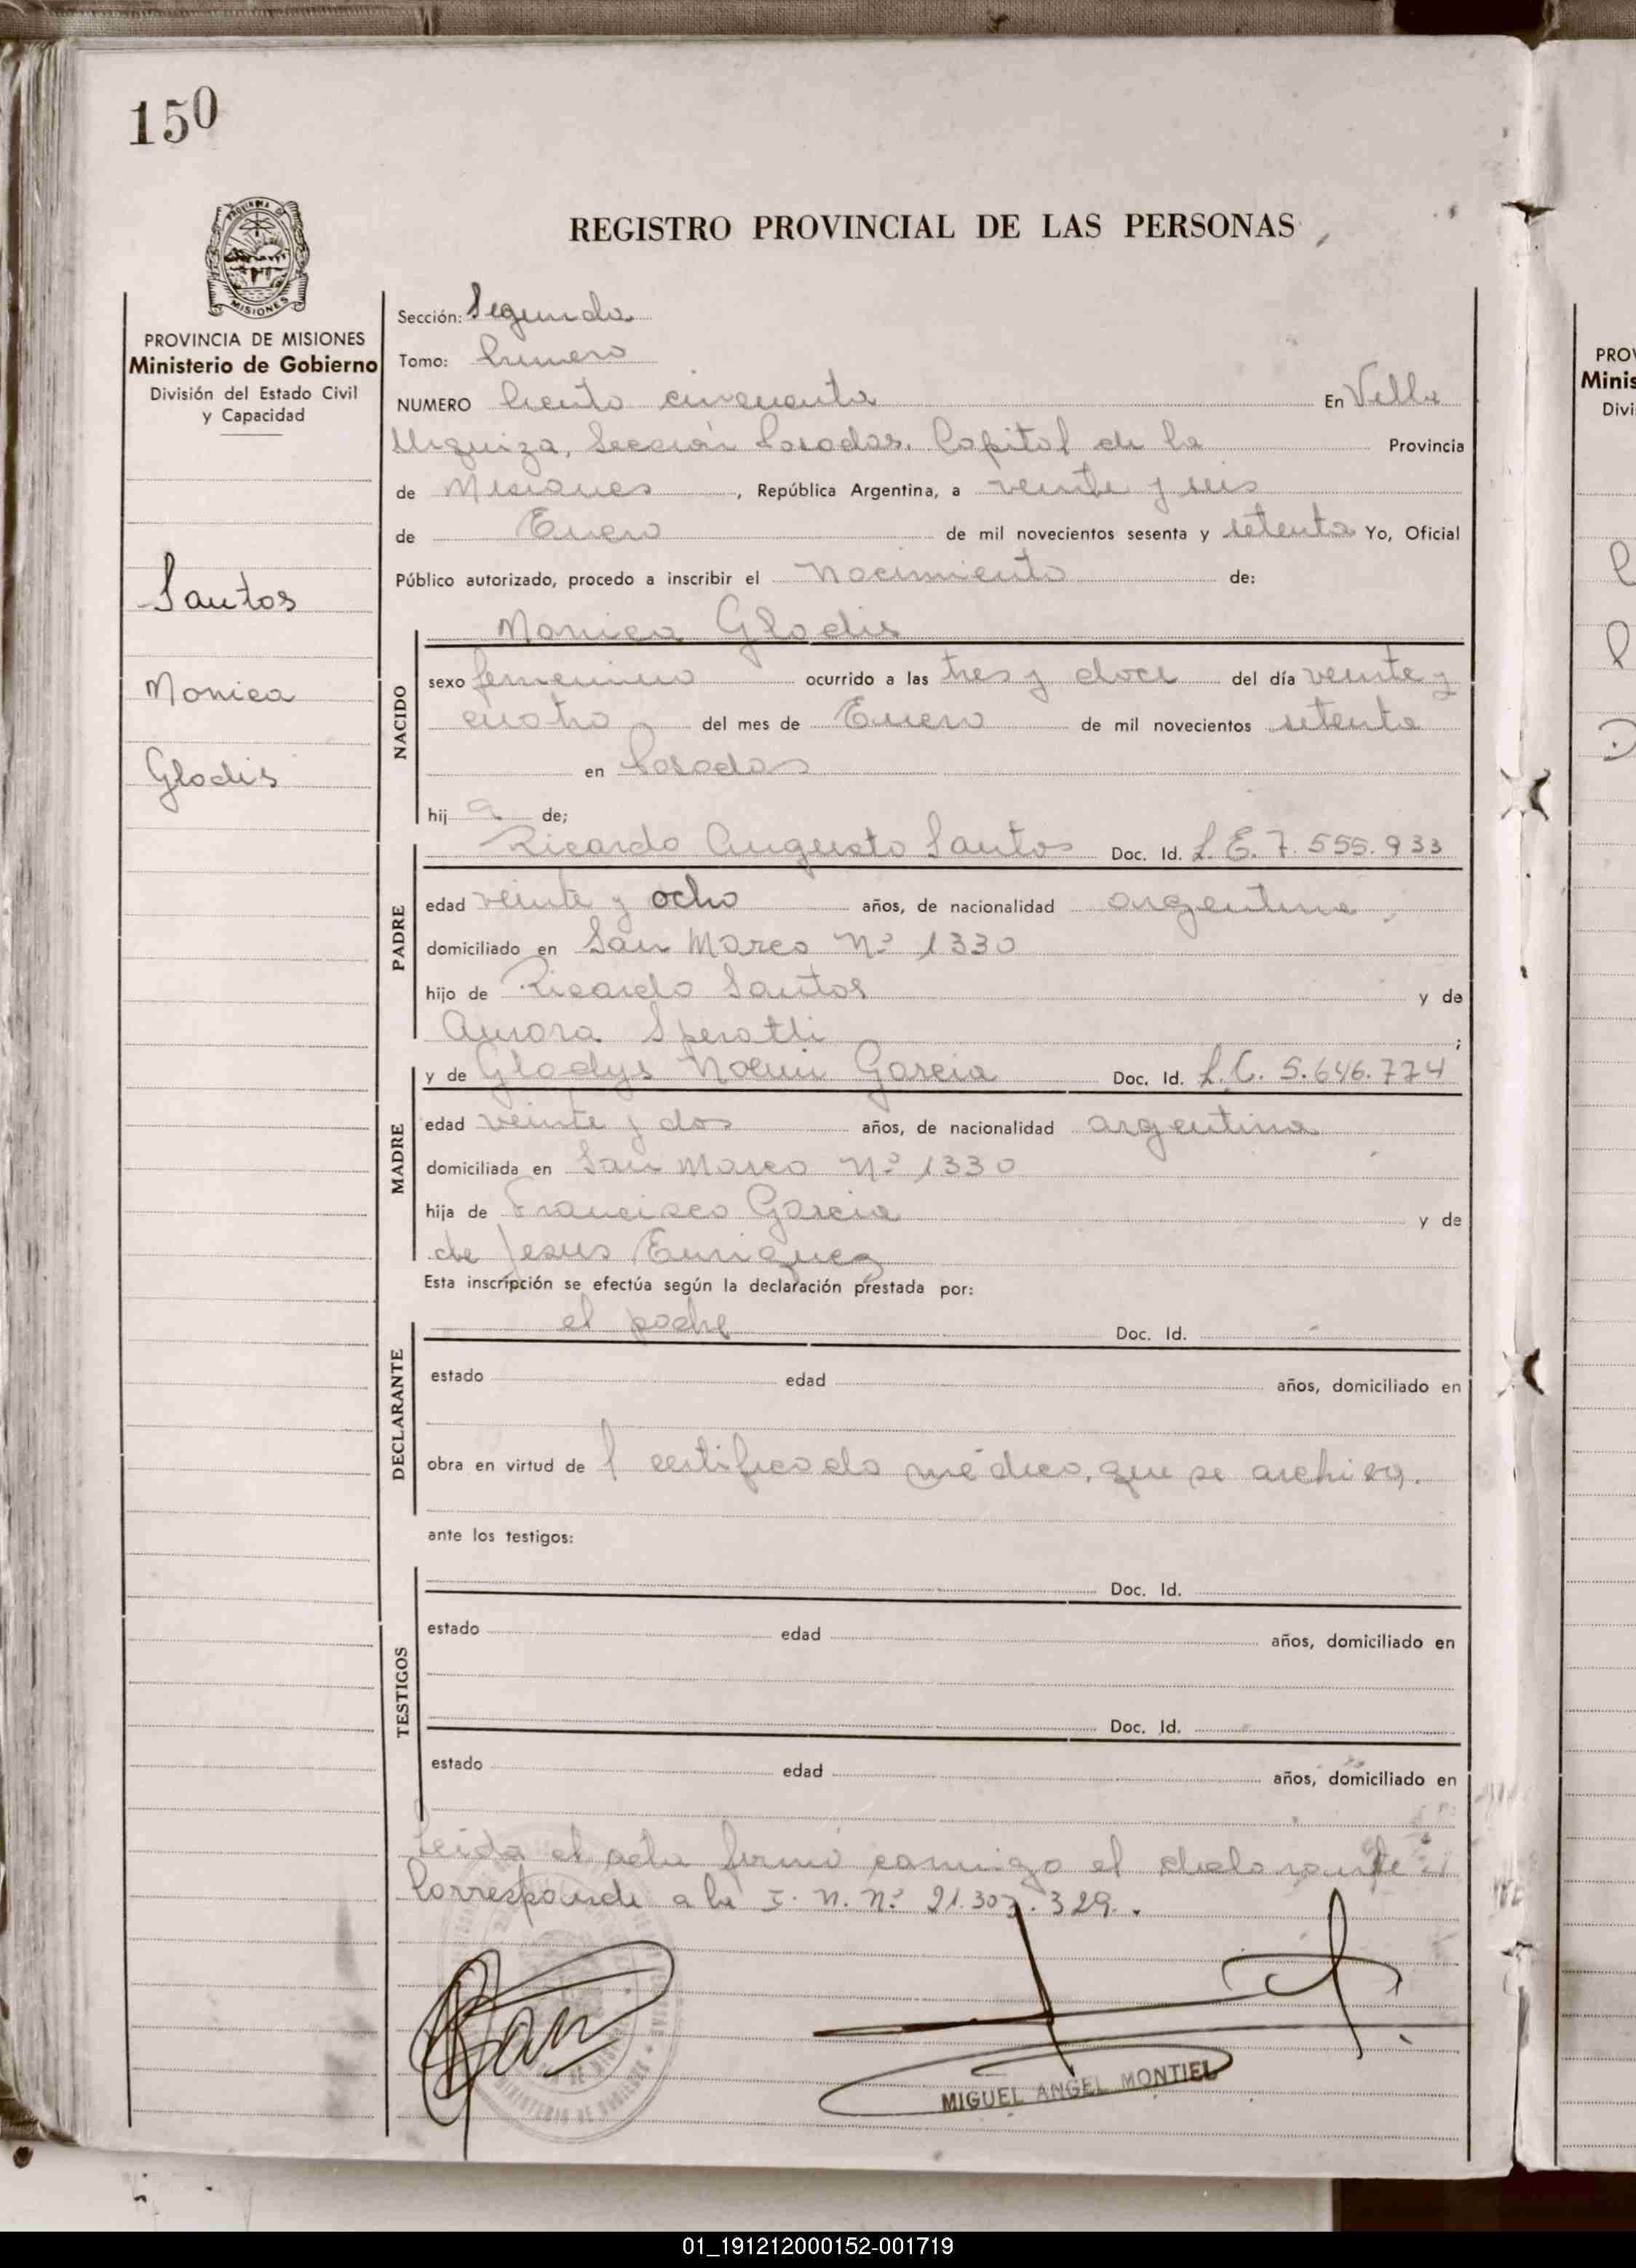 150
REGISTRO PROVINCIAL DE LAS PERSONAS
PROVINCIA DE MISIONES
MISIONES
PROVINCIA DE MISIONES
Ministerio de Gobierno
División del Estado Civil
y Capacidad
Santos
Monica
Gladis
Sección: Segunda
Tomo: Primero
NUMERO Ciento cincuenta En Villa
Urquiza, Sección Posadas. Capital de la Provincia
de Misiones, República Argentina, a veinte y seis
de Enero de mil novecientos sesenta y setenta Yo, Oficial
Público autorizado, procedo a inscribir el Nacimiento de:
Monica Gladis
NACIDO
sexo femenino ocurrido a las tres y doce del día veinte y
cuatro del mes de Enero de mil novecientos setenta
en Posadas
hij a de;
PADRE
Ricardo Augusto Santos Doc. Id. L.E. 7.555.933
edad veinte y ocho años, de nacionalidad argentina
domiciliado en San Marco Nº 1330
hijo de Ricardo Santos y de
Aurora Speratti ;
MADRE
y de Gladys Noemi Garcia Doc. Id. L.C. 5.646.774
edad veinte y dos años, de nacionalidad argentina
domiciliada en San Marco Nº 1330
hija de Francisco Garcia y de
de Jesus Enriquez
Esta inscripción se efectúa según la declaración prestada por:
DECLARANTE
el padre Doc. Id.
estado edad años, domiciliado en
obra en virtud de l certificado médico, que se archiva.
ante los testigos:
TESTIGOS
Doc. Id.
estado edad años, domiciliado en
Doc. Id.
estado edad años, domiciliado en
Leida el acta firmó conmigo el declarante
Corresponde a la I. N. Nº 21.307.329.
MIGUEL ANGEL MONTIEL
PROV
Minis
Divi
01_191212000152-001719